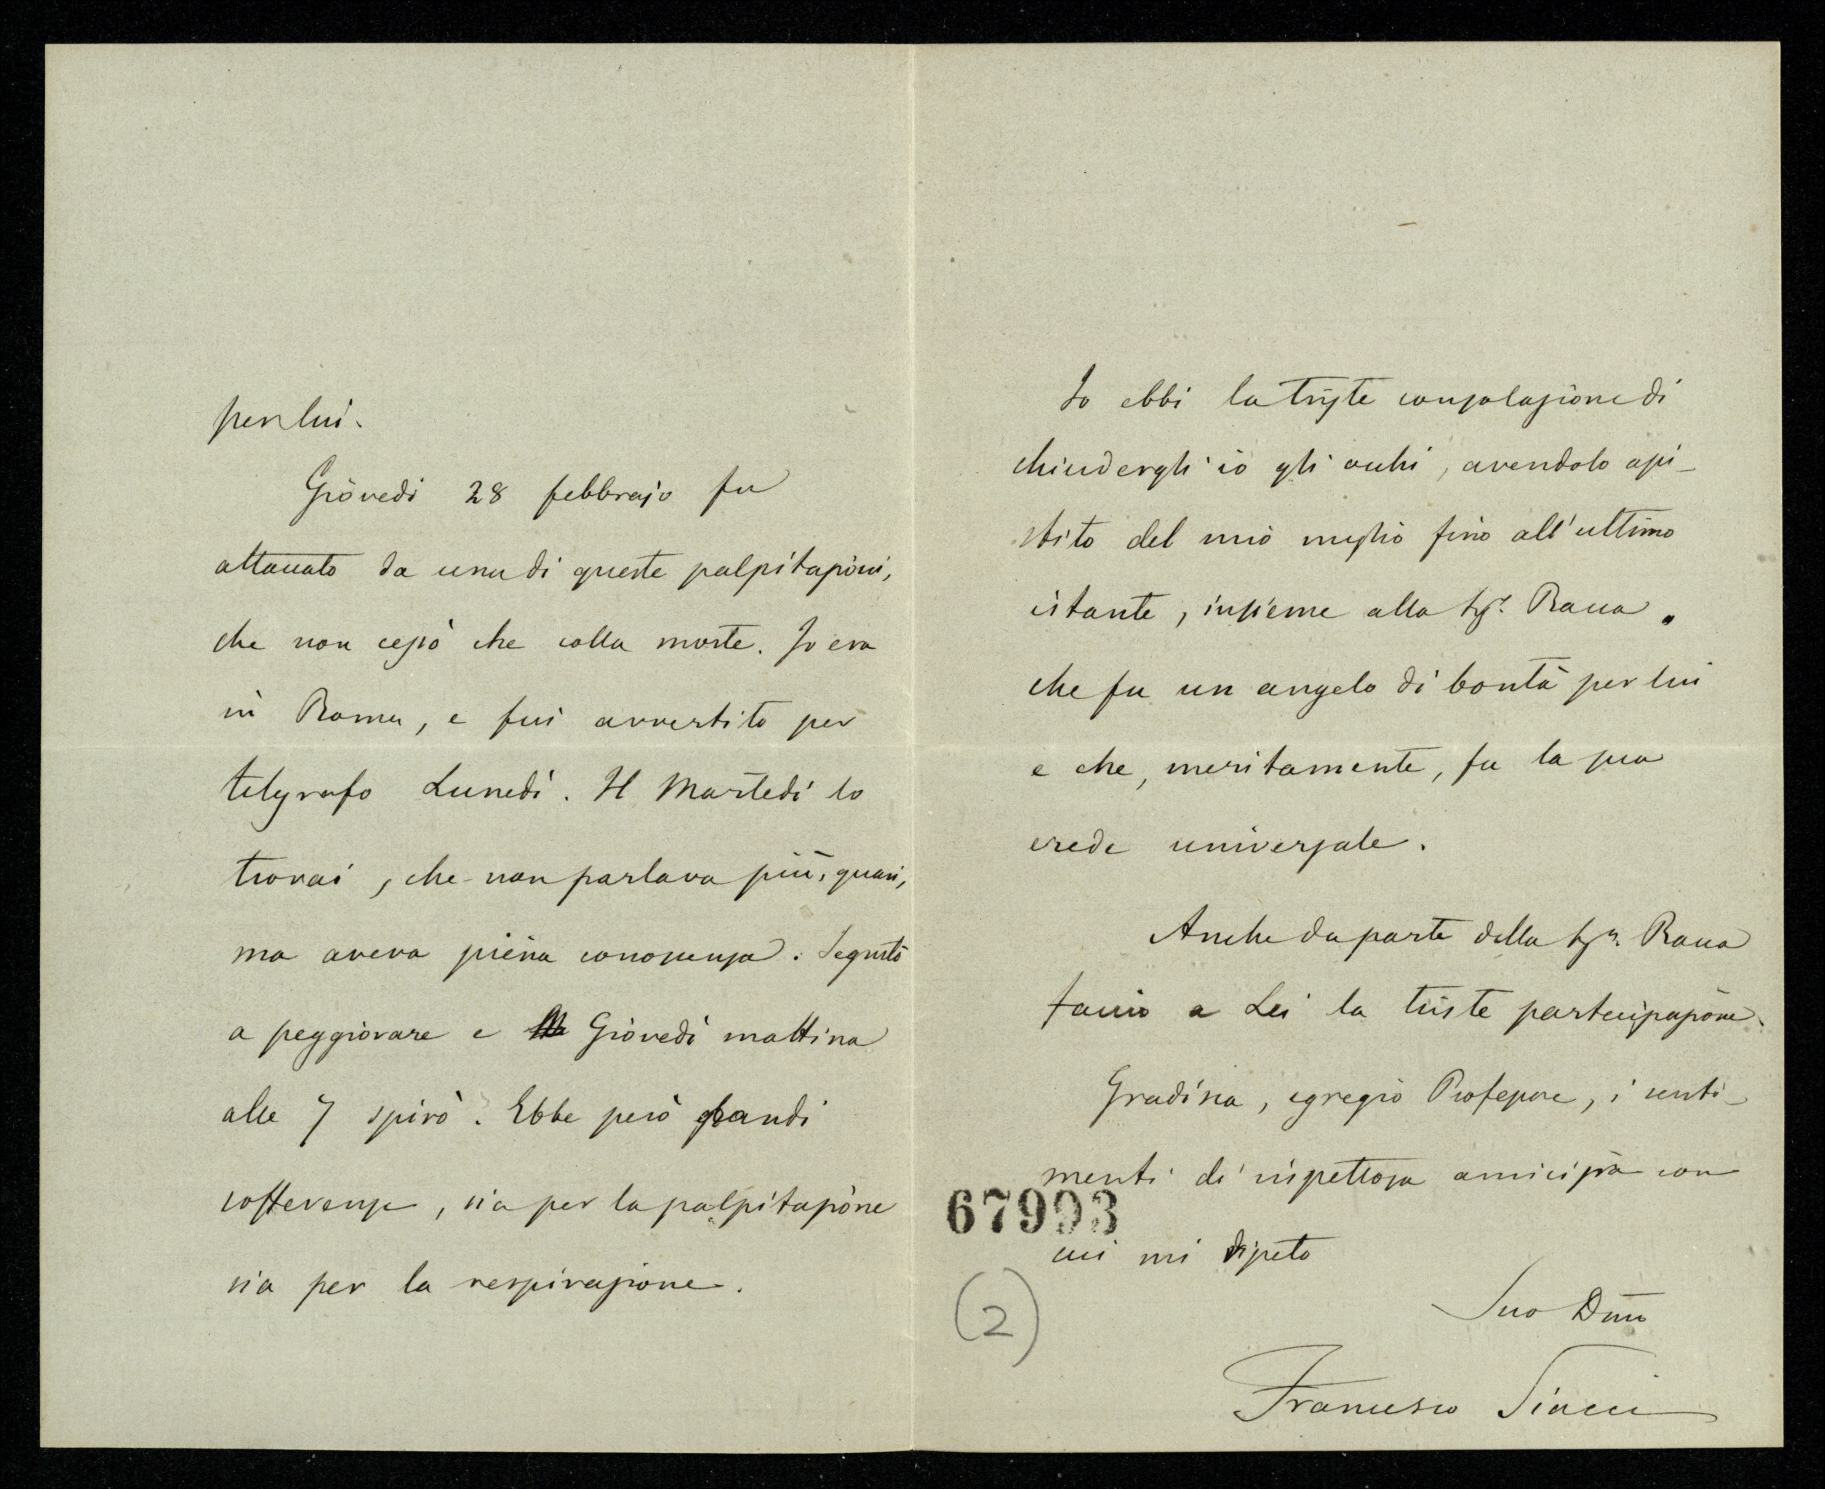 per lui.
Giovedì 28 febbrajo fu
attaccato da una di queste palpitazioni,
che non cessò che colla morte. Io era
in Roma, e fui avvertito per
telegrafo Lunedì. Il Martedì lo
trovai, che non parlava più, quasi,
ma aveva piena conoscenza. Seguitò
a peggiorare e Giovedì mattina
alle 7 spirò. Ebbe però grandi
sofferenze, sia per la palpitazione
sia per la respirazione.
Io ebbi la triste consolazione di
chiudergli io gli occhi, avendolo assi-
stito del mio meglio fino all'ultimo
istante, insieme alla Sgr. Racca
che fu un angelo di bontà per lui
e che, meritamente, fu la sua
erede universale.
Anche da parte della Sgr. Racca
faccio a Lei la triste partecipazione.
Gradisca, egregio Professore, i senti-
menti di rispettosa amicizia con
67993
cui mi ripeto
(2)
Suo Dmo
Francesco Siacci